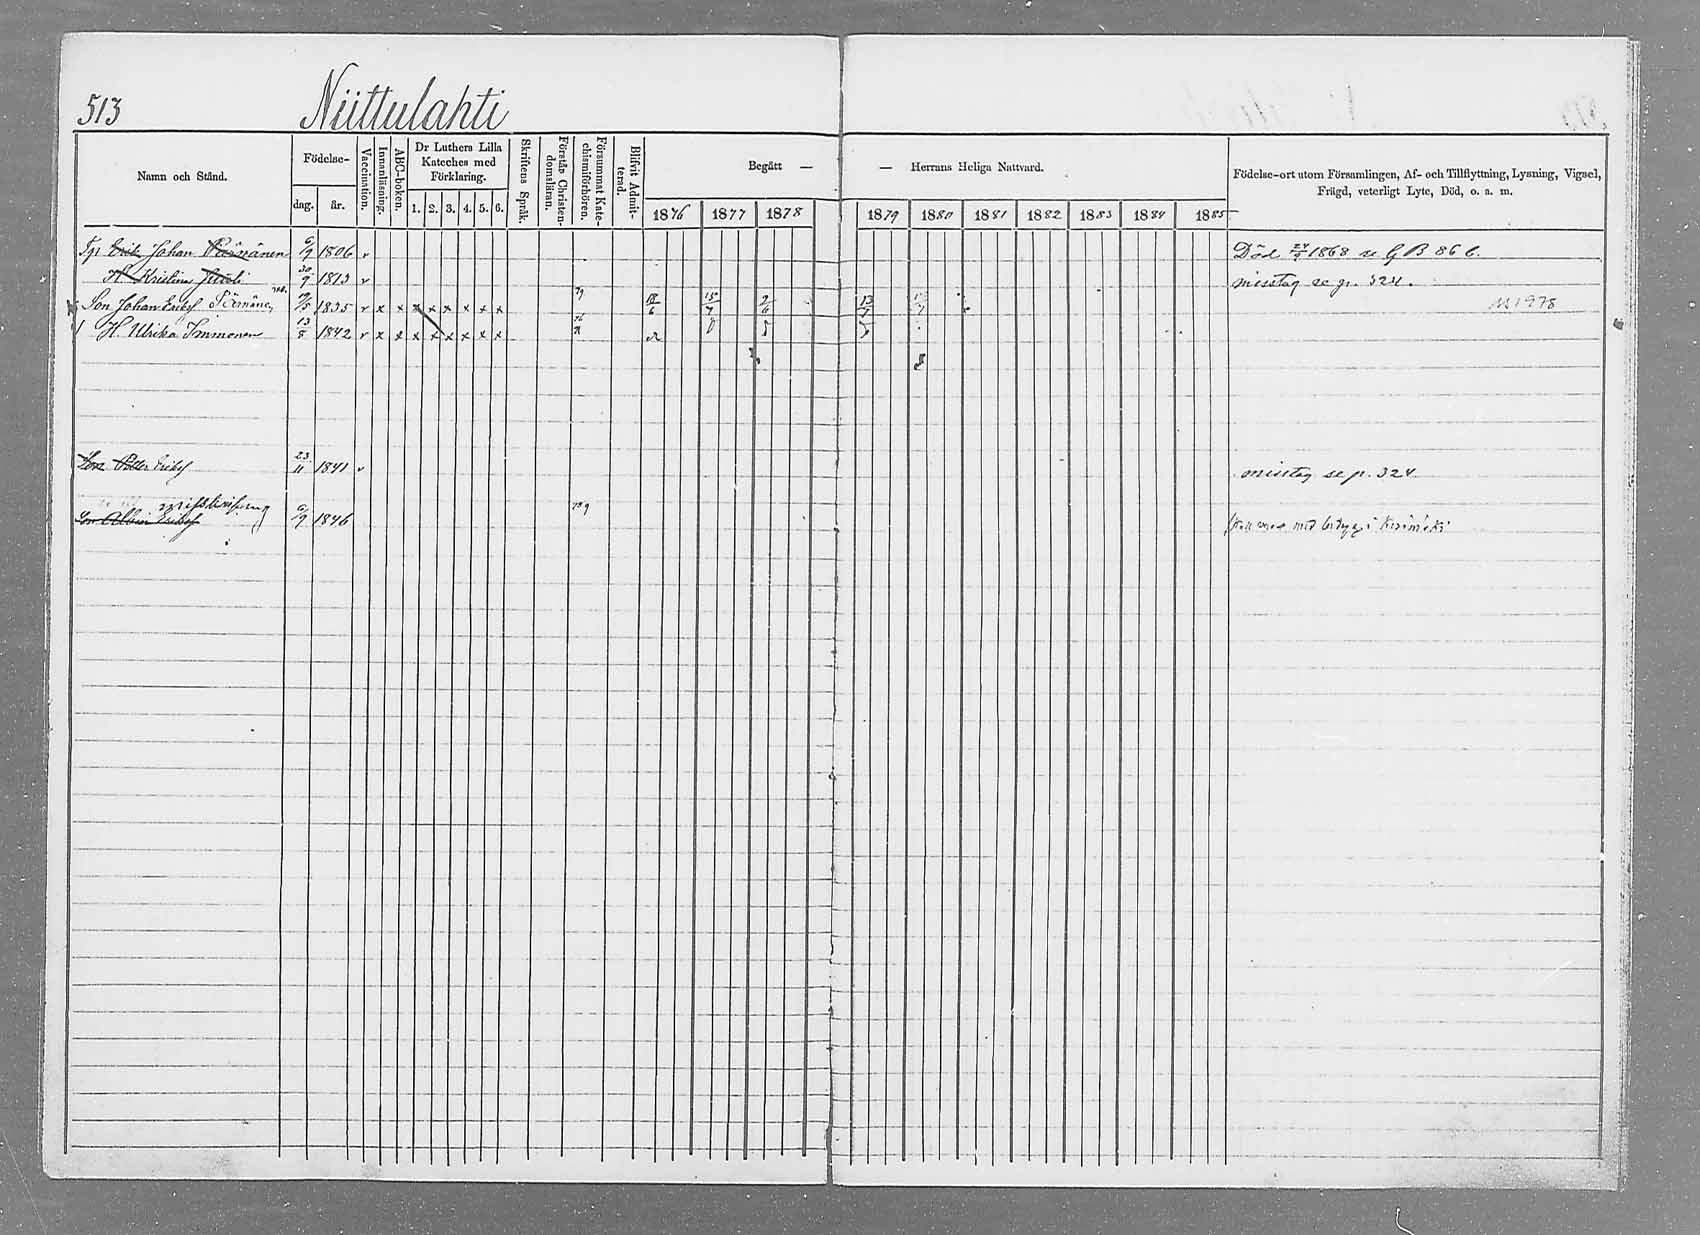 513 Niittulahti
Namn och Stånd.
Födelse-
dag. år.
Vaccination.
Innanläsning.
ABC-boken.
Dr Luthers Lilla
Kateches med
Förklaring.
1. 2. 3. 4. 5. 6.
Skriftens Språk.
Förstår Christen-
domsläran.
Försummat Kate-
chismiförhören.
Blifvit Admit-
terad.
Begått —
— Herrans Heliga Nattvard.
1876 1877 1878 1879 1880 1881 1882 1883 1884 1885
Födelse-ort utom Församlingen, Af- och Tillflyttning, Lysning, Vigsel,
Frägd, veterligt Lyte, Död, o. a. m.
Erik Johan Pärnänen 6/9 1806 v Död 1868 se G B 86 b.
H. Kristina 30/9 1813 v misstag se p. 324.
Son Johan Eriksf Pärnänen 1835 v x x x x x x x x 79 18/6 13/7 M 1978
H. Ulrika Immonen 13/5 1842 v x x x x x x x x
Son Petter Eriksf 23/11 1841 v misstag se p. 324
Son Albin Eriksf 6/9 1846 med betyg i Kerimäki